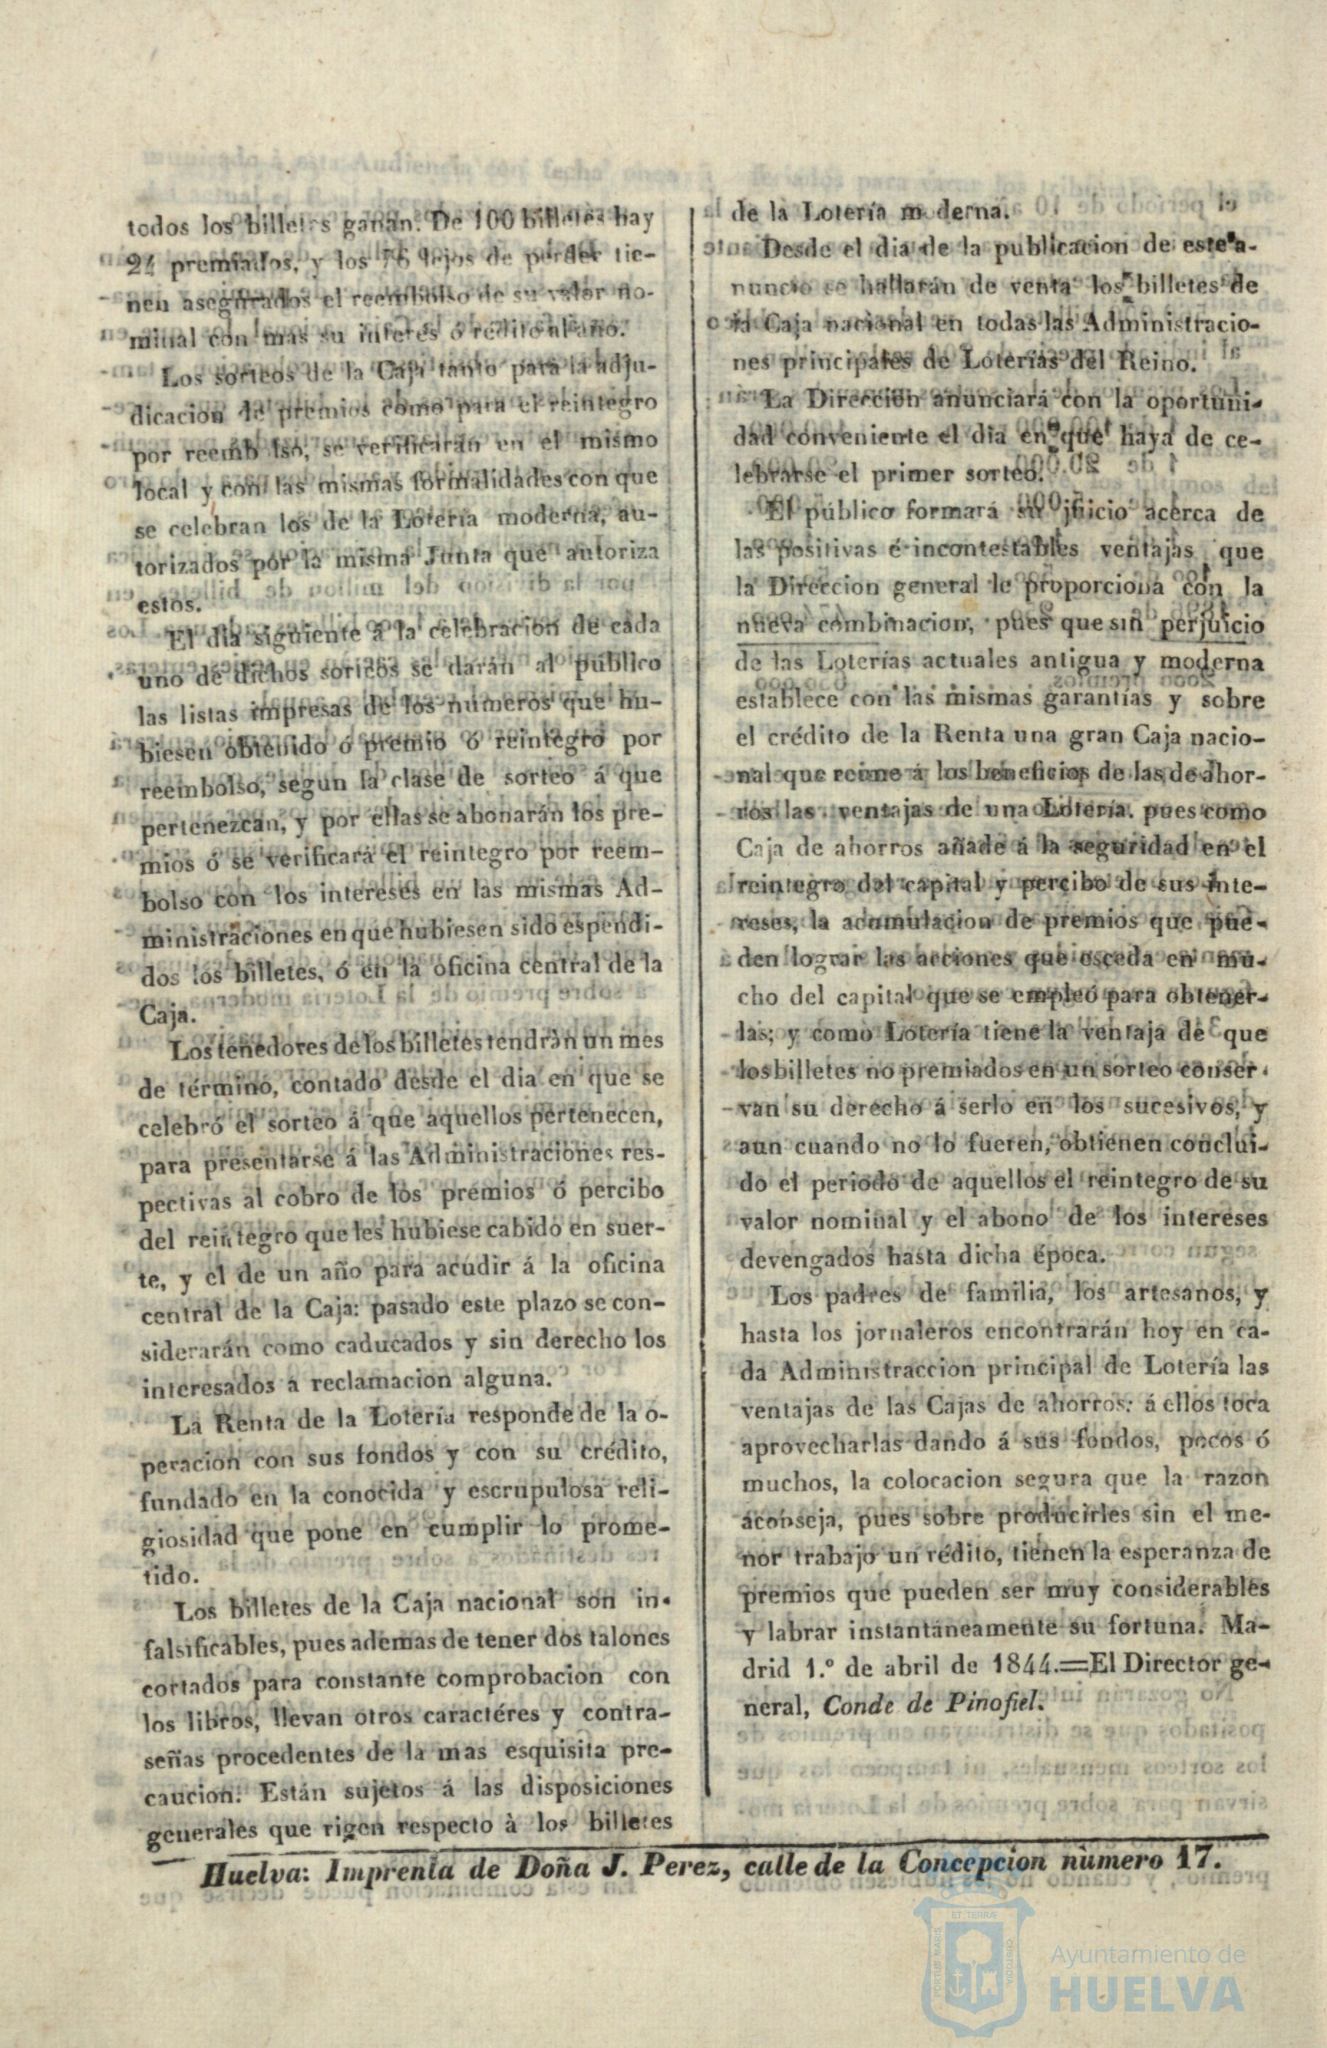 todos los billetes ganan. De 100 billetes hay
24 premiados, y los 76 lejos de perder tie-
nen asegurados el reembolso de su valor no-
minal con mas su interés ó rédito al año.
Los sorteos de la Caja tanto para la adju-
dicacion de premios como para el reintegro
por reembolso, se verificarán en el mismo
local y con las mismas formalidades con que
se celebran los de la Lotería moderna, au-
torizados por la misma Junta que autoriza
estos.
El dia siguiente á la celebracion de cada
uno de dichos sorteos se darán al público
las listas impresas de los números que hu-
biesen obtenido ó premio ó reintegro por
reembolso, segun la clase de sorteo á que
pertenezcan, y por ellas se abonarán los pre-
mios ó se verificará el reintegro por reem-
bolso con los intereses en las mismas Ad-
ministraciones en que hubiesen sido espendi-
dos los billetes, ó en la oficina central de la
Caja.
Los tenedores de los billetes tendràn un mes
de término, contado desde el dia en que se
celebró el sorteo á que aquellos pertenecen,
para presentarse á las Administraciones res-
pectivas al cobro de los premios ó percibo
del reintegro que les hubiese cabido en suer-
te, y el de un año para acudir á la oficina
central de la Caja: pasado este plazo se con-
siderarán como caducados y sin derecho los
interesados a reclamacion alguna.
La Renta de la Lotería responde de la o-
peracion con sus fondos y con su crédito,
fundado en la conocida y escrupulosa reli-
giosidad que pone en cumplir lo prome-
tido.
Los billetes de la Caja nacional son in-
falsificables, pues ademas de tener dos talones
cortados para constante comprobacion con
los libros, llevan otros caractéres y contra-
señas procedentes de la mas esquisita pre-
caucion. Están sujetos á las disposiciones
generales que rigen respecto à los billetes
de la Lotería moderna.
Desde el dia de la publicacion de este a-
nuncio se hallarán de venta los billetes de
la Caja nacional en todas las Administracio-
nes principales de Loterías del Reino.
La Direccion anunciará con la oportuni-
dad conveniente el dia en que haya de ce-
lebrarse el primer sorteo.
El público formará su juicio acerca de
las positivas é incontestables ventajas que
la Direccion general le proporciona con la
nueva combinacion, pues que sin perjuicio
de las Loterías actuales antigua y moderna
establece con las mismas garantías y sobre
el crédito de la Renta una gran Caja nacio-
nal que reune á los beneficios de las de ahor-
ros las ventajas de una Lotería. pues como
Caja de ahorros añade á la seguridad en el
reintegro del capital y percibo de sus inte-
reses, la acumulacion de premios que pue-
den lograr las acciones que esceda en mu-
cho del capital que se empleó para obtener-
las; y como Lotería tiene la ventaja de que
los billetes no premiados en un sorteo conser-
van su derecho á serlo en los sucesivos, y
aun cuando no lo fueren, obtienen conclui-
do el periodo de aquellos el reintegro de su
valor nominal y el abono de los intereses
devengados hasta dicha época.
Los padres de familia, los artesanos, y
hasta los jornaleros encontrarán hoy en ca-
da Administraccion principal de Lotería las
ventajas de las Cajas de ahorros: á ellos toca
aprovecharlas dando á sus fondos, pocos ó
muchos, la colocacion segura que la razon
aconseja, pues sobre producirles sin el me-
nor trabajo un rédito, tienen la esperanza de
premios que pueden ser muy considerables
y labrar instantáneamente su fortuna. Ma-
drid 1.º de abril de 1844.=El Director ge-
neral, Conde de Pinofiel.
Huelva: Imprenta de Doña J. Perez, calle de la Concepcion nùmero 17.
PORTUS MARIS ET TERRÆ CUSTODIA
Ayuntamiento de
HUELVA